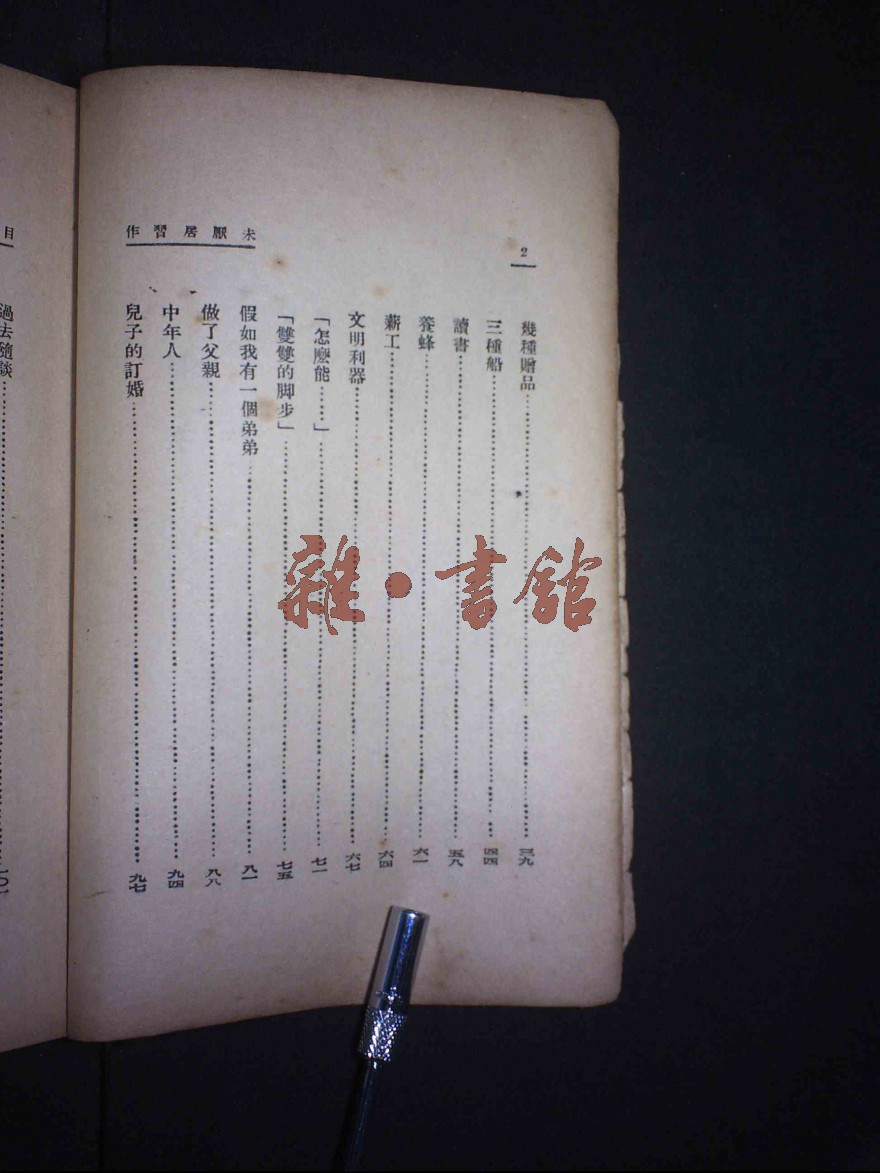 2
未厭居習作
幾種贈品……三九
三種船……四四
讀書……五八
養蜂……六一
薪工……六四
文明利器……六七
「怎麽能……」……七一
「雙雙的脚步」……七五
假如我有一個弟弟……八一
做了父親……八八
中年人……九四
兒子的訂婚……九七
目
過去隨談……一〇一
雜·書館